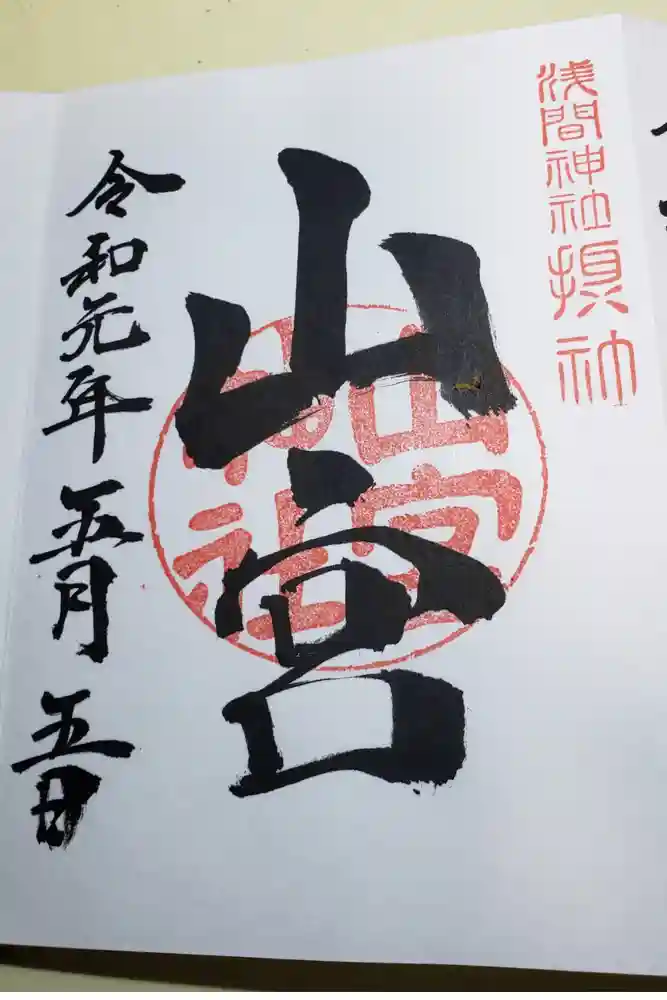 浅間神社摂社
山宮
令和元年五月五日